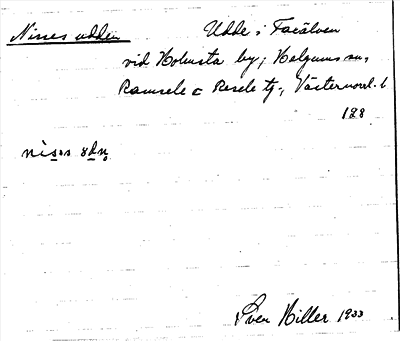 Nisses udden Udde i Faxälven
vid Holmsta by, Helgums sn,
Ramsele o Resele tg., Västernorrl. l.
128
Sven Hiller 1933